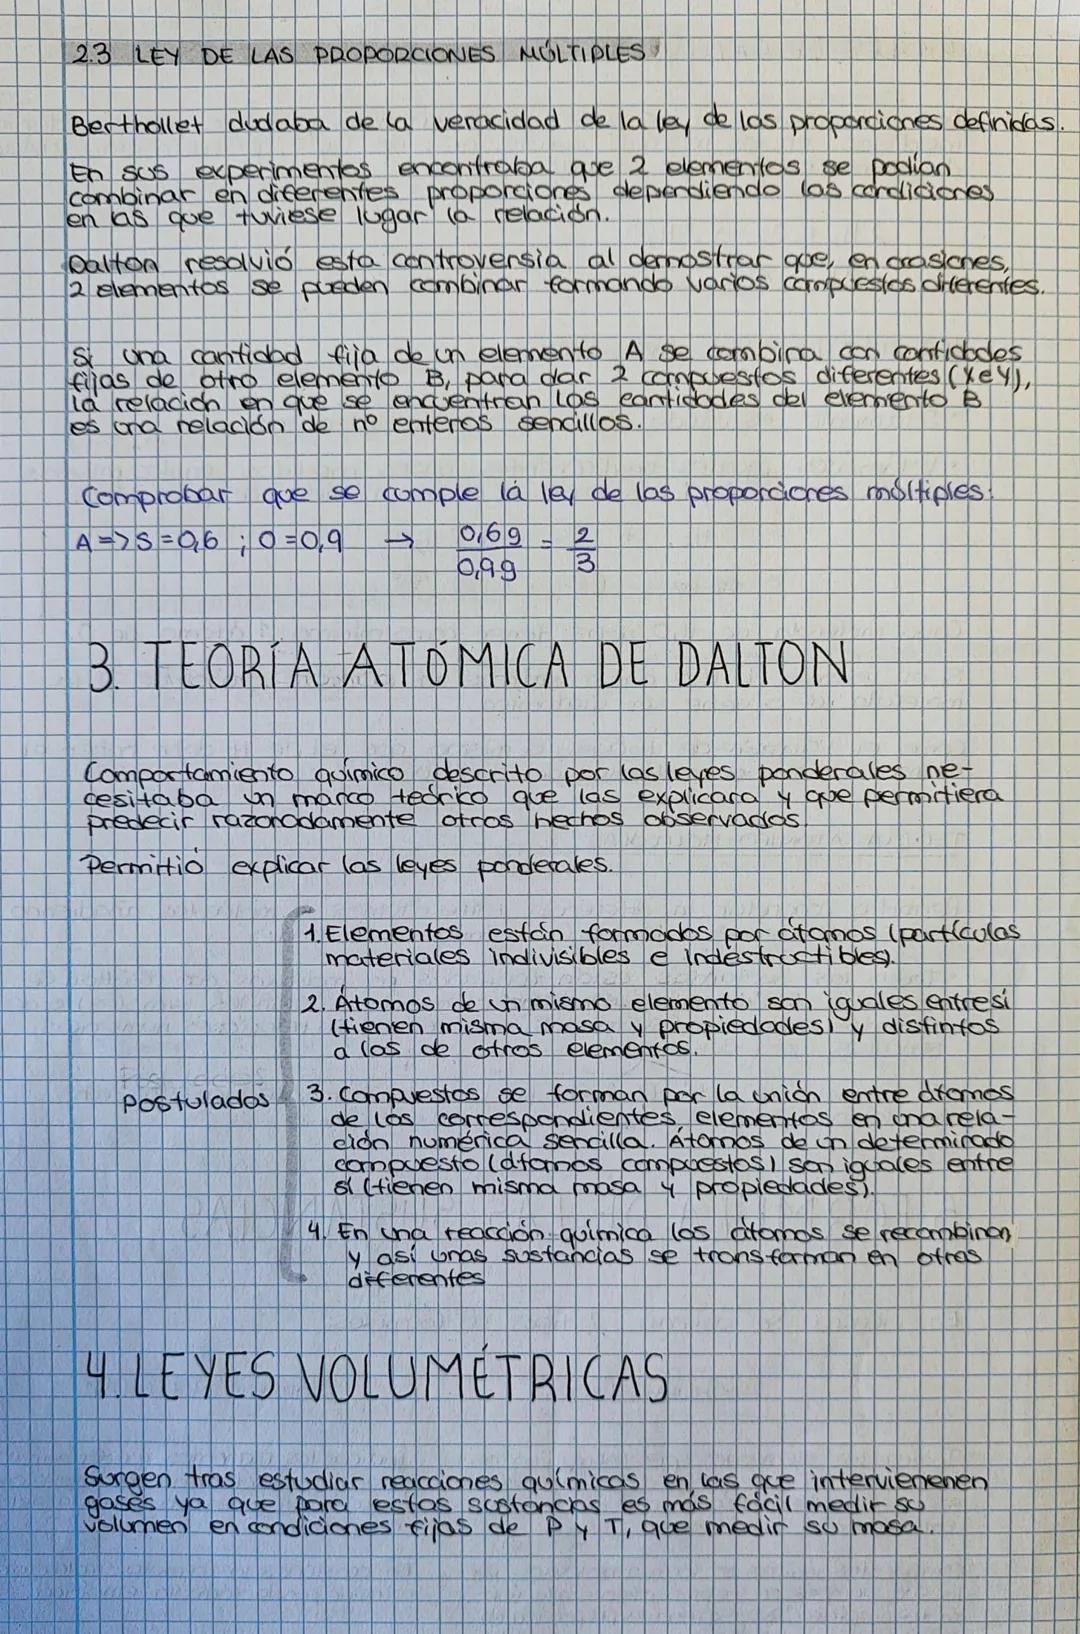 2.3 LEY DE LAS PROPORCIONES MÚLTIPLES
Berthollet dudaba de la veracidad de la ley de las proporciones definidas.
En sus experimentos encontraba que 2 elementos se podían
combinar en diferentes proporciones dependiendo las condiciones
en las que tuviese lugar la relación.
Dalton resolvió esta controversia al demostrar que, en ocasiones,
2 elementos se pueden combinar formando varios compuestos diferentes.
Si una cantidad fija de un elemento A se combina con cantidades
fijas de otro elemento B, para dar 2 compuestos diferentes (X e Y),
la relación en que se encuentran las cantidades del elemento B
es una relación de nº enteros sencillos.
Comprobar que se cumple la ley de las proporciones múltiples:
A => S = 0,6 ; O = 0,9 → 0,6g / 0,9g = 2/3
3. TEORÍA ATÓMICA DE DALTON
Comportamiento químico descrito por las leyes ponderales ne-
cesitaba un marco teórico que las explicara y que permitiera
predecir razonadamente otros hechos observados.
Permitió explicar las leyes ponderales.
1. Elementos están formados por átomos (partículas
materiales indivisibles e indestructibles).
2. Átomos de un mismo elemento son iguales entre sí
(tienen misma masa y propiedades) y distintos
a los de otros elementos.
Postulados
3. Compuestos se forman por la unión entre átomos
de los correspondientes elementos en una rela-
ción numérica sencilla. Átomos de un determinado
compuesto (átomos compuestos) son iguales entre
sí (tienen misma masa y propiedades).
4. En una reacción química los átomos se recombinan
y así unas sustancias se transforman en otras
diferentes
4. LEYES VOLUMÉTRICAS
Surgen tras estudiar reacciones químicas en las que intervienenen
gases ya que para estas sustancias es más fácil medir su
volumen en condiciones fijas de P y T, que medir su masa.